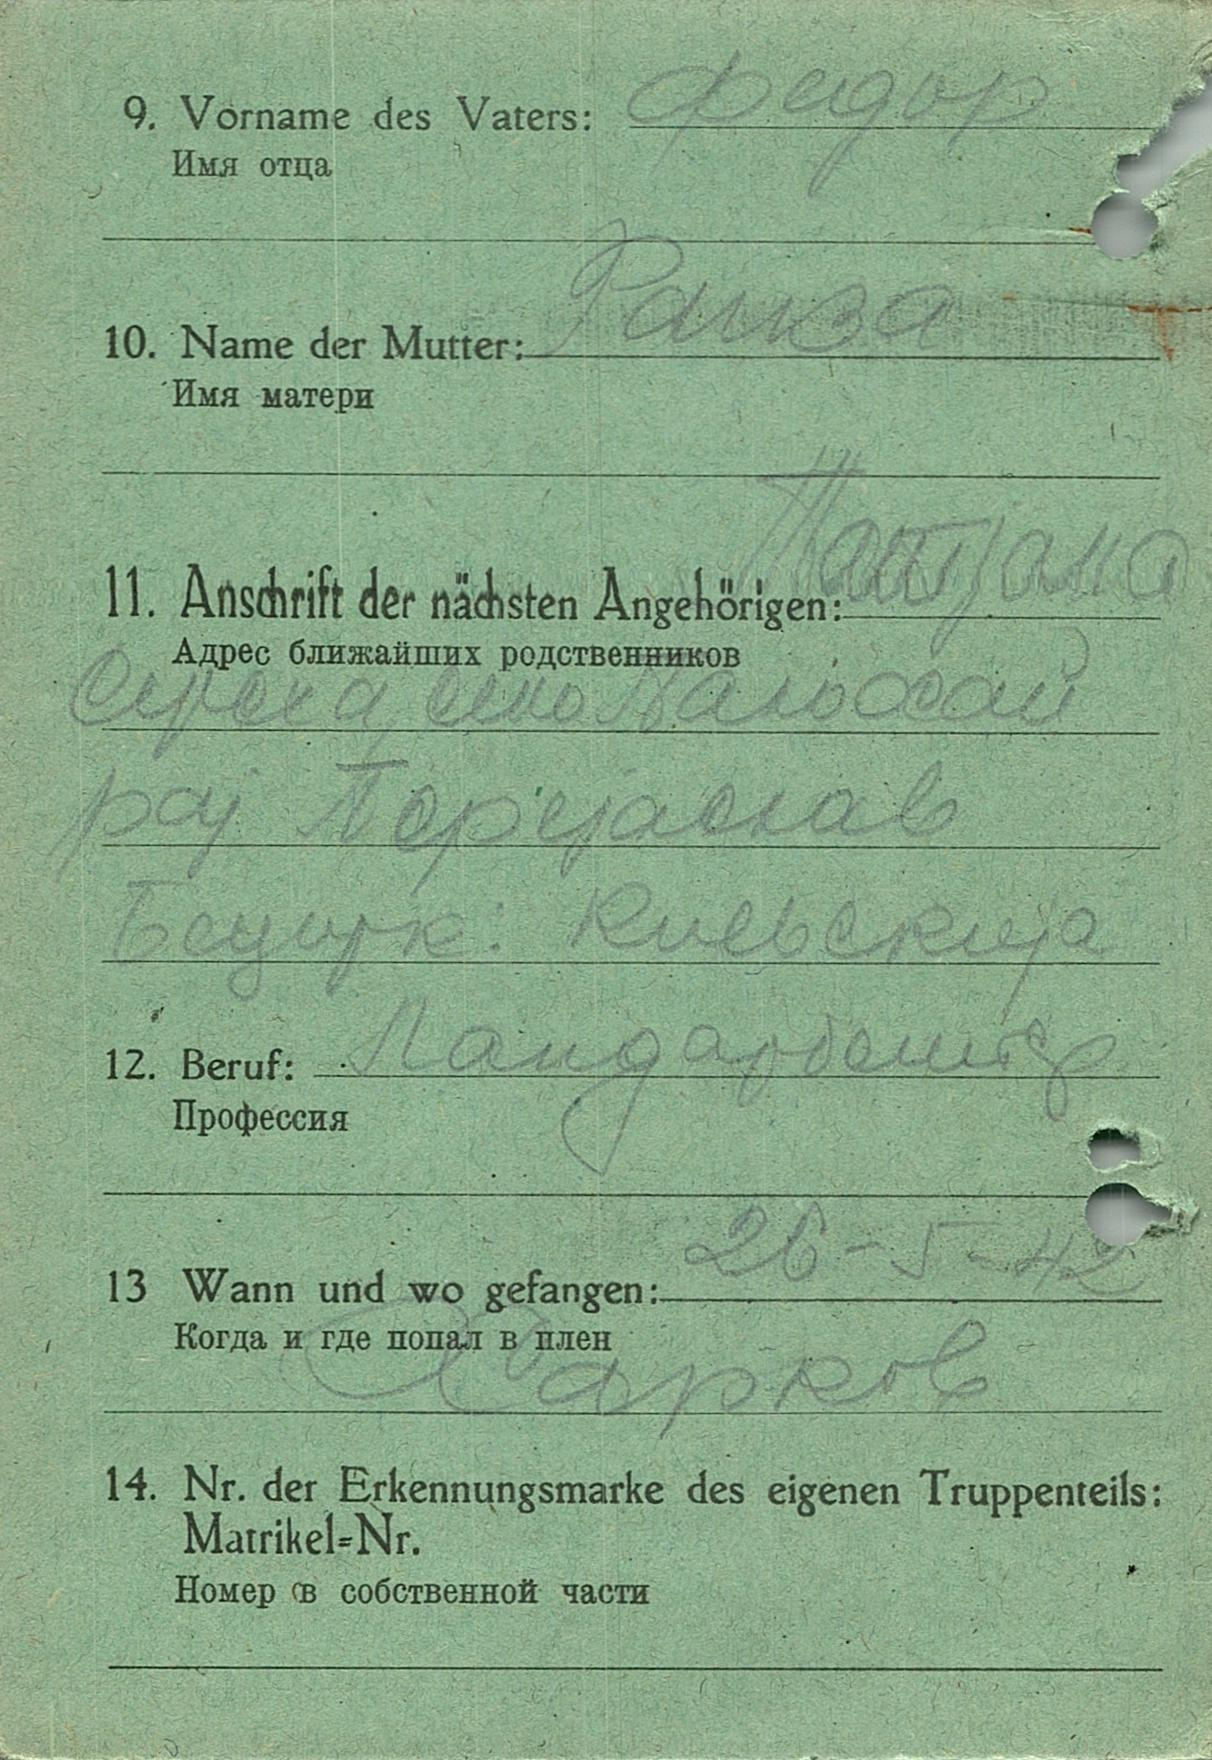 9. Vorname des Vaters: Федор
Имя отца
10. Name der Mutter: Раиза
Имя матери
11. Anschrift der nächsten Angehörigen:
Адрес ближайших родственников
село
рај Перејаслав
Бецирк: Киевскија
12. Beruf:Ландарбеитер
Профессия
13 Wann und wo gefangen: 26-5-42
Когда и где попал в плен
Харков
14. Nr. der Erkennungsmarke des eigenen Truppenteils:
Matrikel=Nr.
Номер в собственной части